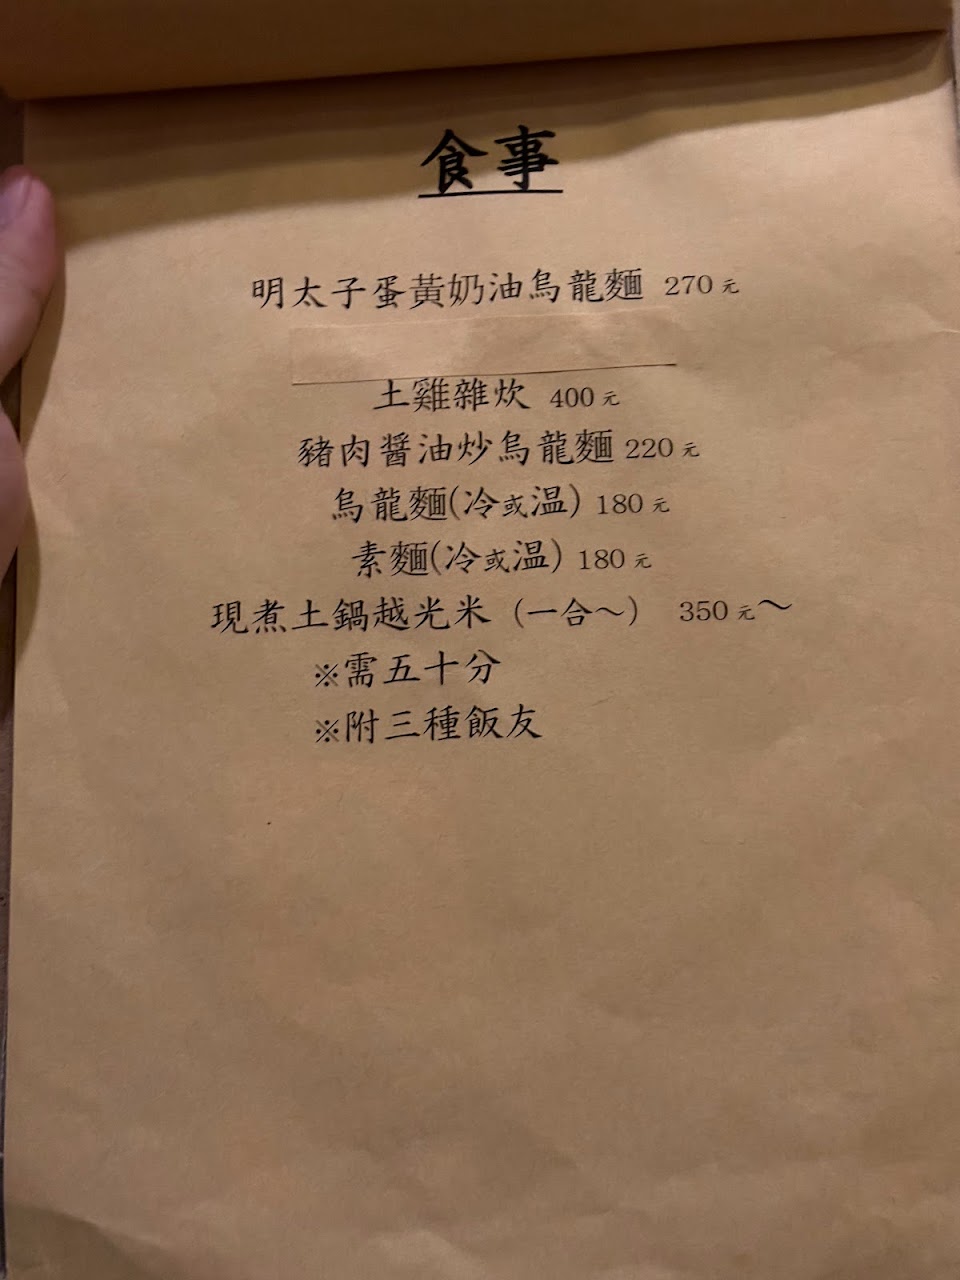 食事
明太子蛋黃奶油烏龍麵 270元
土雞雜炊 400元
豬肉醬油炒烏龍麵 220元
烏龍麵(冷或温) 180元
素麵(冷或温) 180元
現煮土鍋越光米 (一合～) 350元～
※需五十分
※附三種飯友